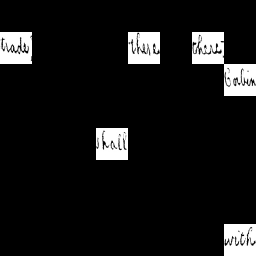 trade there there,
Corbin
shall
with